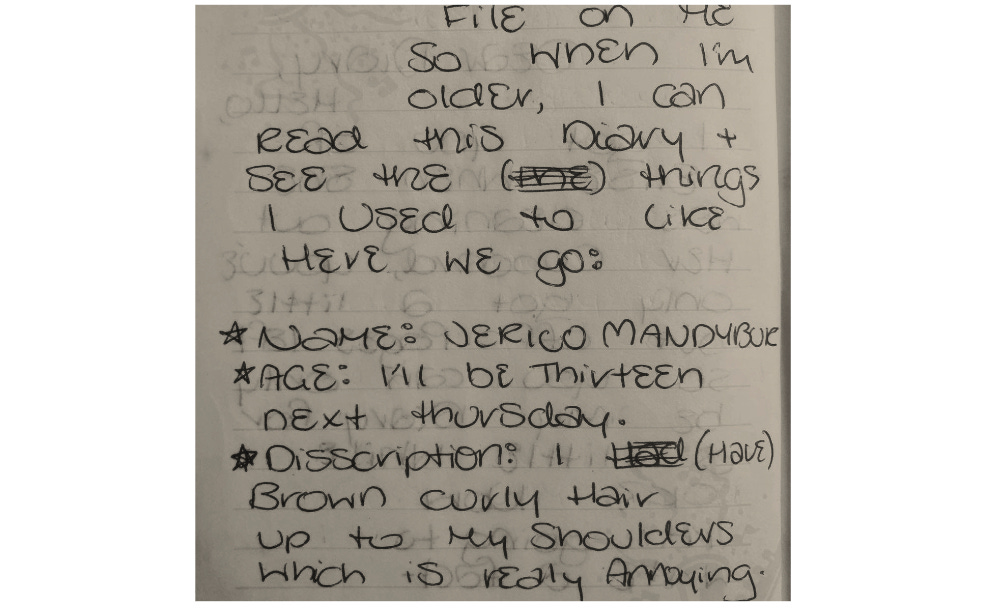 FilE on ME
So wHEN I'm
oldEr, I can
REad this Diary +
SEE thE (thE) things
I USEd to LikE
HErE WE go:
☆ NaME: JERiCO MANDYBUR
☆ AGE: I'll bE ThirtEEn
nExt thursday.
☆ Disscription: I Had (HavE)
Brown curly Hair
up to My ShouldErs
which is rEaly Annoying.